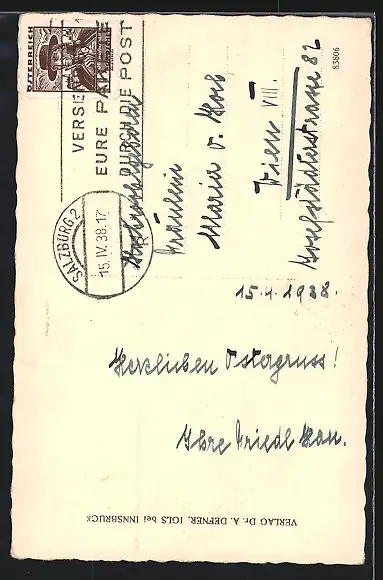 ÖSTERREICH
VERSE
EURE PAK
DURCH DIE POST
SALZBURG 2
15. IV. 38. 17
Hochwohlgeboren
Fräulein
Maria v.
Wien VIII.
Josefstädterstrasse 82
83806
15.4.1938.
Herzlichen Ostergruss!
Ihre Friedl
VERLAG Dr. A. DEFNER, IGLS bei INNSBRUCK